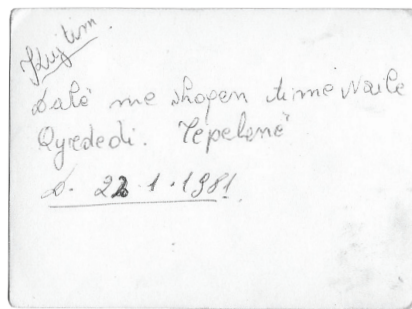 Kujtim
Dalë me shoqen time Naile
Qyrdedi. Tepelenë
D. 22.1.1981.